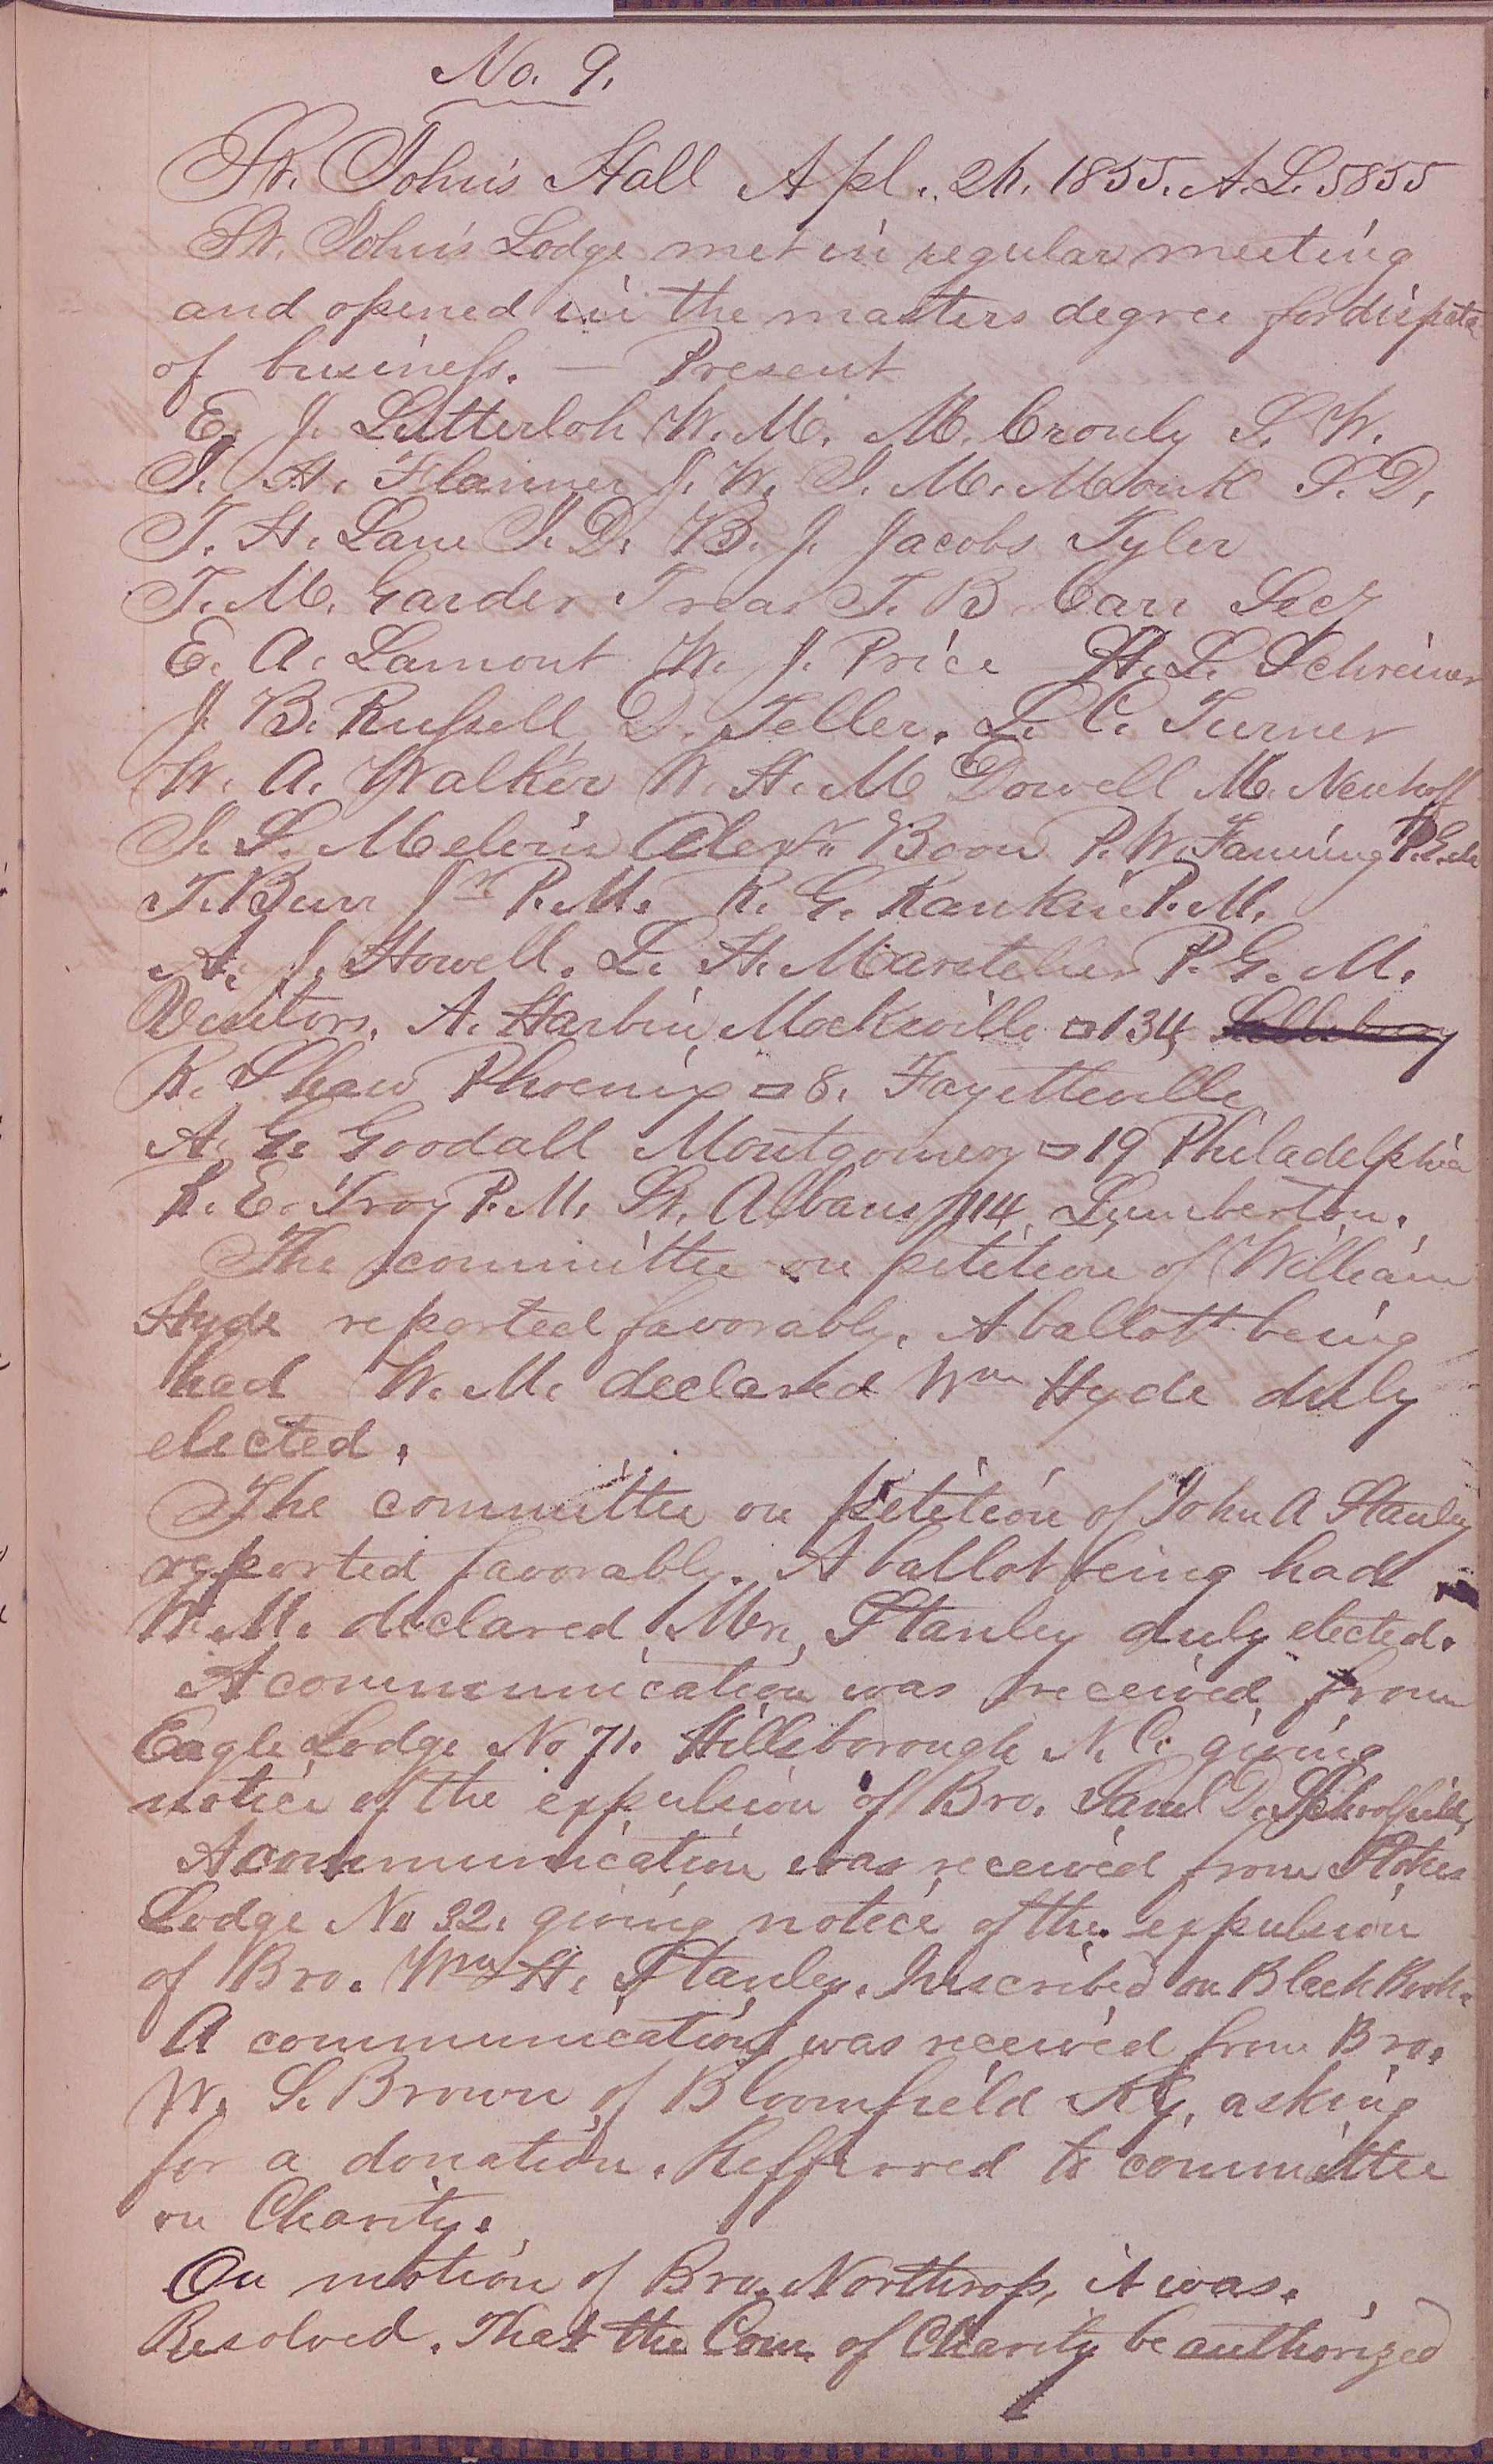 No. 9.
St. John's Hall Apl. 24. 1855. A. L. 5855
St. John's Lodge met in regular meeting
and opened in the masters degree for dispatch
of business. — Present
E. J. Lutterloh W. M. M. Cronly S. W.
J. H. Flanner J. W. J. M. Monk S. D.
T. H. Lane J. D. B. J. Jacobs Tyler
T. M. Garder Treas T. B. Carr Secy
E. A. Lamont W. J. Price H. L. Schreiner
J. B. Russell D. Teller. L. C. Turner
W. A. Walker W. H. Mc Dowell M. Newhoff
J. S. Melvin Alexr. Boon P. W. Fanning
T. Burr Jr P. M. R. G. Rankin P. M.
A. J. Howell. L. H. Marsteller P. G. M.
Visitors. A. Harbin Mocksville ▭ 134
R. Shaw Phoenix ▭ 8. Fayetteville
A. G. Goodall Montgomery ▭ 19 Philadelphia
R. E. Troy P. M. St. Albans 114 Lumberton.
The committee on petition of William
Hyde reported favorably. A ballott being
had W. M. declared Wm Hyde duly
elected.
The committee on petition of John A Stanley
reported favorably. A ballot being had
W. M. declared Mr. Stanley duly elected.
A communication was received from
Eagle Lodge No 71. Hillsborough N. C. giving
notice of the expulsion of Bro. Saml D. Schoolfield,
A communication was received from Stokes
Lodge No 32. giving notice of the expulsion
of Bro. Wm H. Stanley. Inscribed on Black Book.
A communication was received from Bro.
W. S. Brown of Bloomfield Ky. asking
for a donation. Refferred to committee
on Charity.
On motion of Bro. Northrop, it was.
Resolved. That the Com. of Charity be authorized